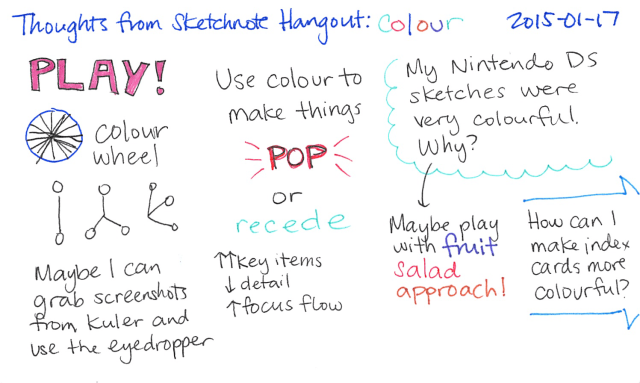 Thoughts from Sketchnote Hangout: colour
2015-01-17
PLAY!
colour
wheel
Maybe I can
grab screenshots
from Kuler and
use the eyedropper
Use colour to
make things
POP
or
recede
↑↑key items
↓ detail
↑focus flow
My Nintendo DS
sketches were
very colourful.
Why?
Maybe play
with fruit
salad
approach!
How can I
make index
cards more
colourful?